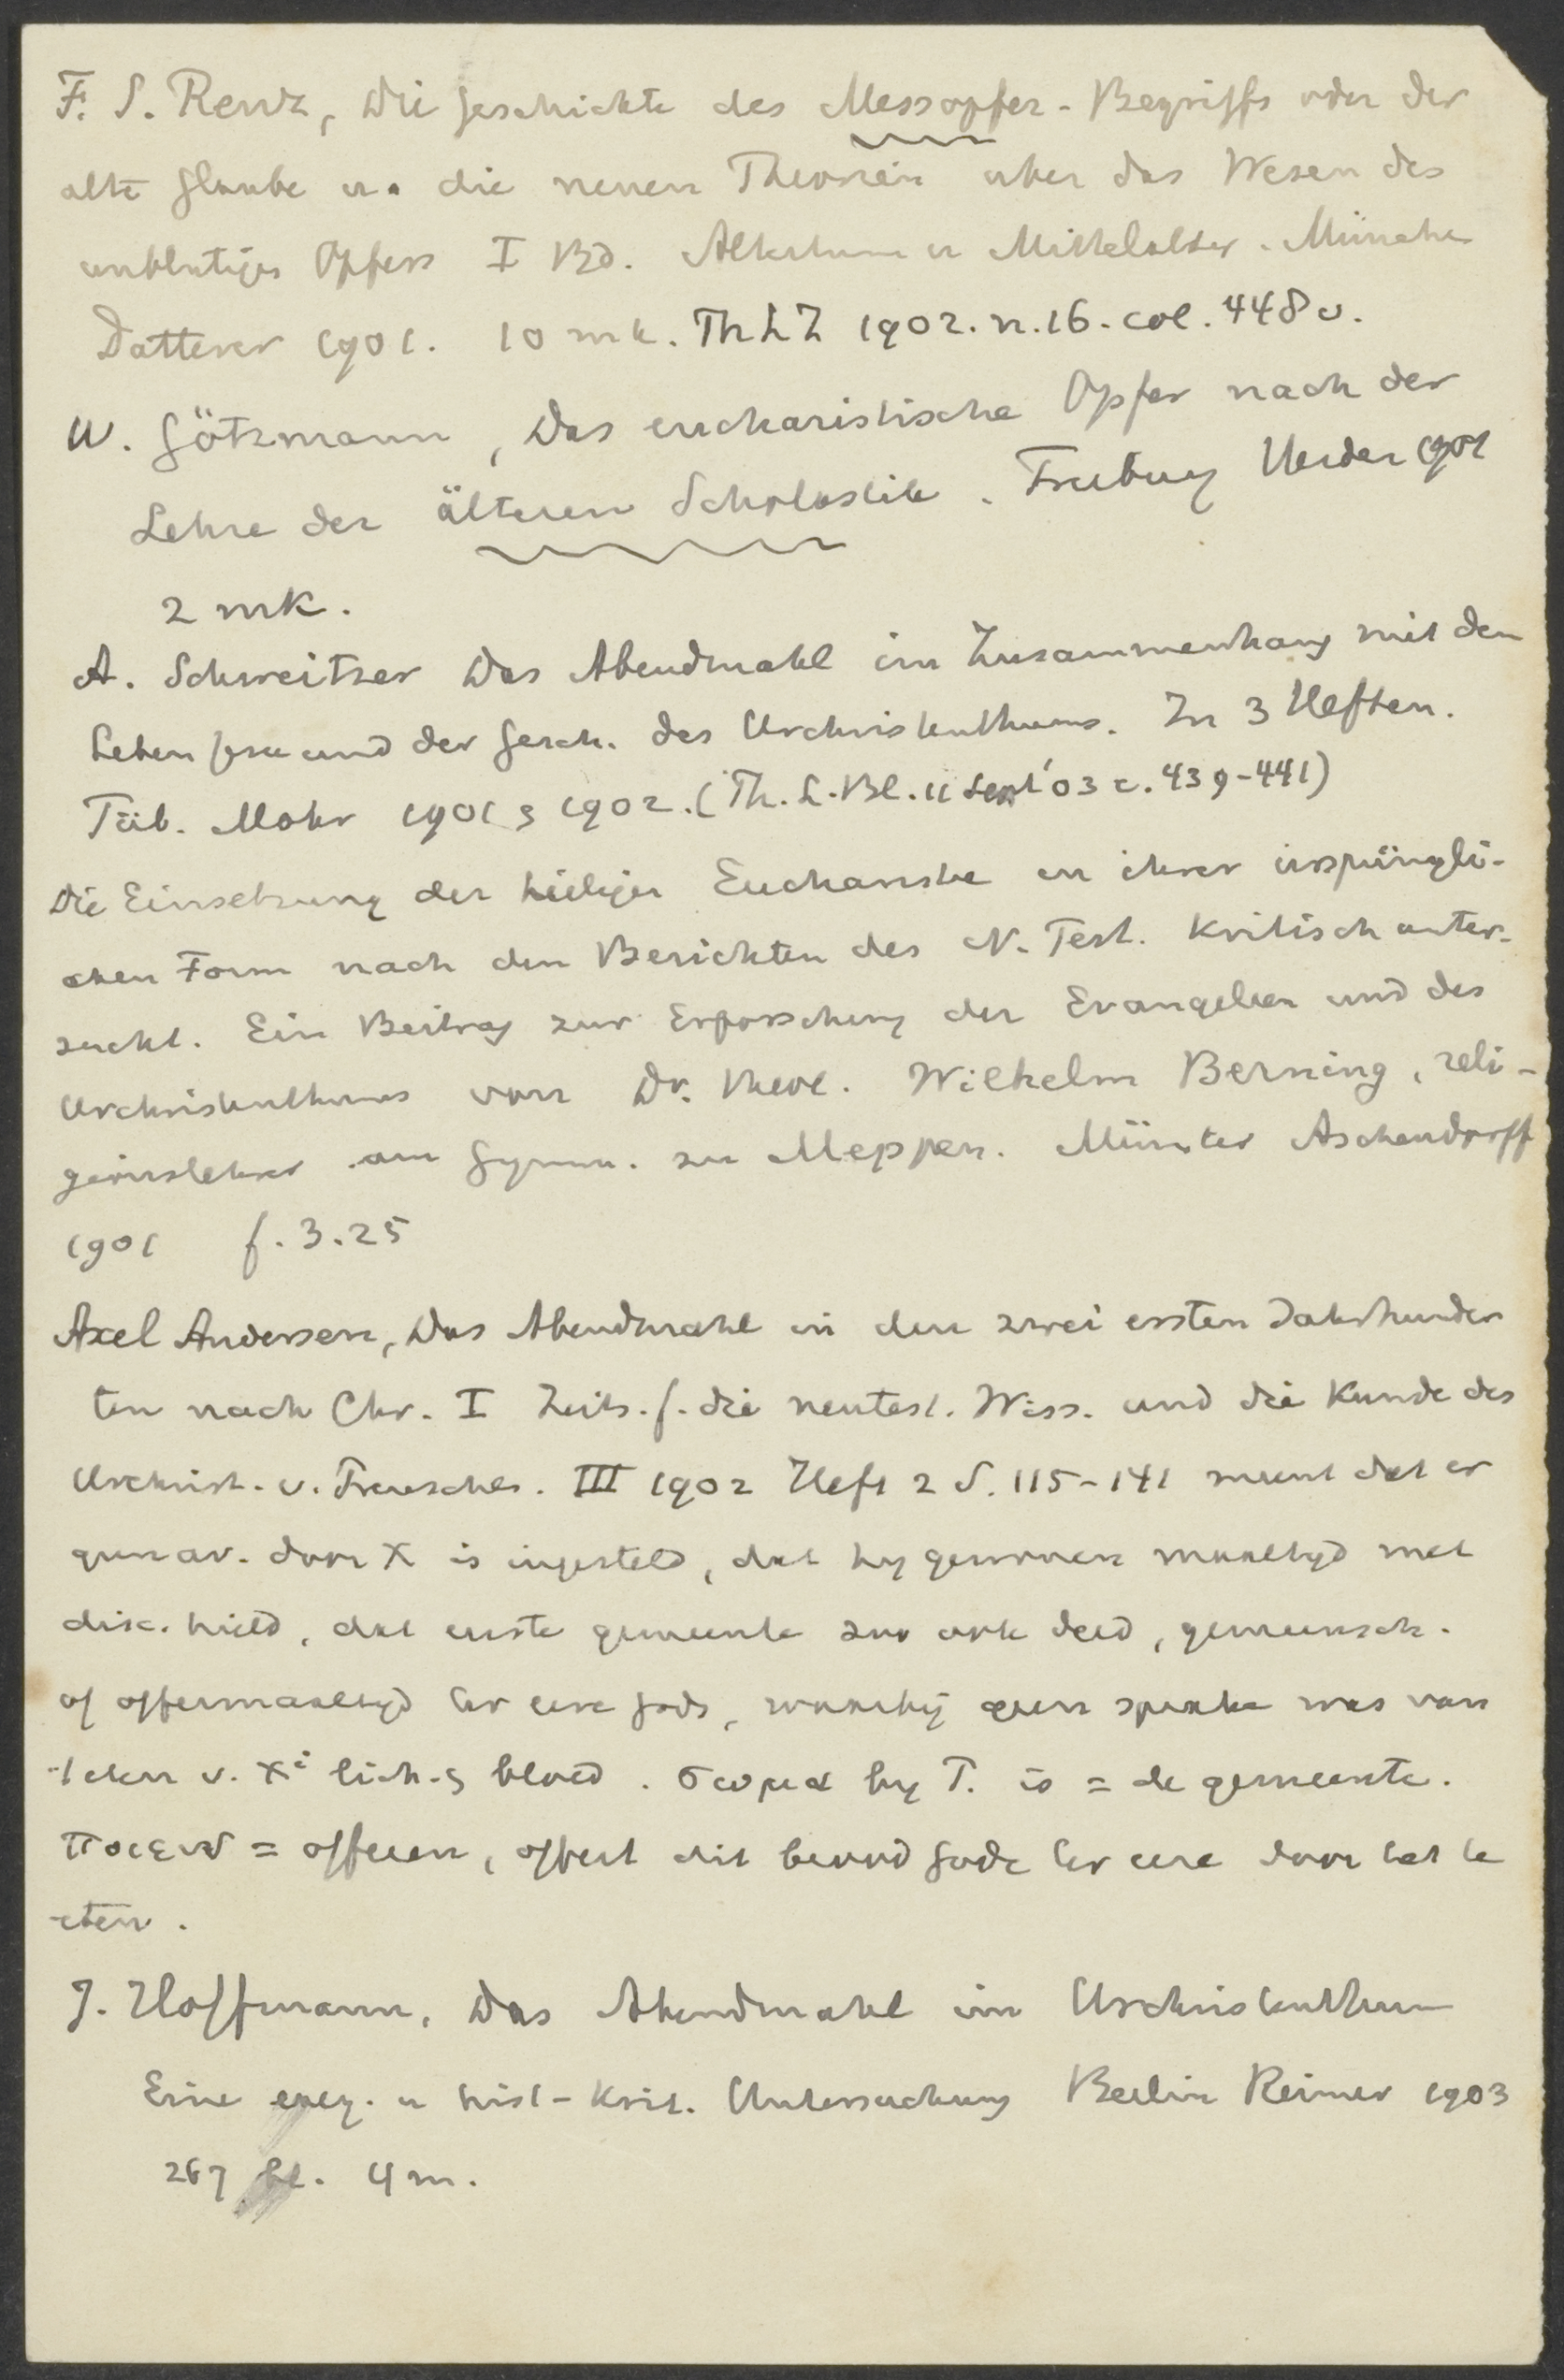 F. S. Renz, Die Geschichte des Messopfer-Begriffs oder der
alte Glaube u. die neuen Theorien uber das Wesen des
unblutigen Opfers I Bd. Alterthum u Mittelalter. München
Datterer 1901. 10 mk. Th L Z 1902. n. 16. col. 448 v.
W. Götzmann, Das eucharistische Opfer nach der
Lehre der älteren Scholastik. Freiburg Herder 1901
2 mk.
A. Schweitzer Das Abendmahl im Zusammenhang mit dem
Leben Jesu und der Gesch. des Urchristenthums. In 3 Heften.
Tüb. Mohr 1901 & 1902. (Th. L. Bl. 11 Sept '03 c. 439-441)
Die Einsetzung der heiligen Eucharistie in ihrer ursprüngli-
chen Form nach den Berichten des N. Test. Kritisch unter-
sucht. Ein Beitrag zur Erforschung der Evangelien und des
Urchristenthums von Dr. theol. Wilhelm Berning, reli-
gionslehrer am Gymn. zu Meppen. Münster Aschendorff
1901 f. 3.25
Axel Andersen, Das Abendmahl in den zwei ersten Jahrhunder
ten nach Chr. I Zeits. f. die neutest. Wiss. und die Kunde des
Urchrist. v. Preuschen. III 1902 Heft 2 S. 115-141 meent dat er
geen av. door X is ingesteld, dat hy gewonen maaltyd met
disc. hield, dat eerste gemeente zoo ook deed, gemeensch.
of offermaaltyd ter eere Gods, waarbij geen sprake was van
teken v. Xi lich. & bloed. σωμα by P. is = de gemeente.
ποιειν = offeren, offert dit brood Gode ter eere door het te
eten.
J. Hoffmann, Das Abendmahl im Urchristenthum
Eine exeg. u hist-krit. Untersuchung Berlin Reimer 1903
267 bl. 4 m.